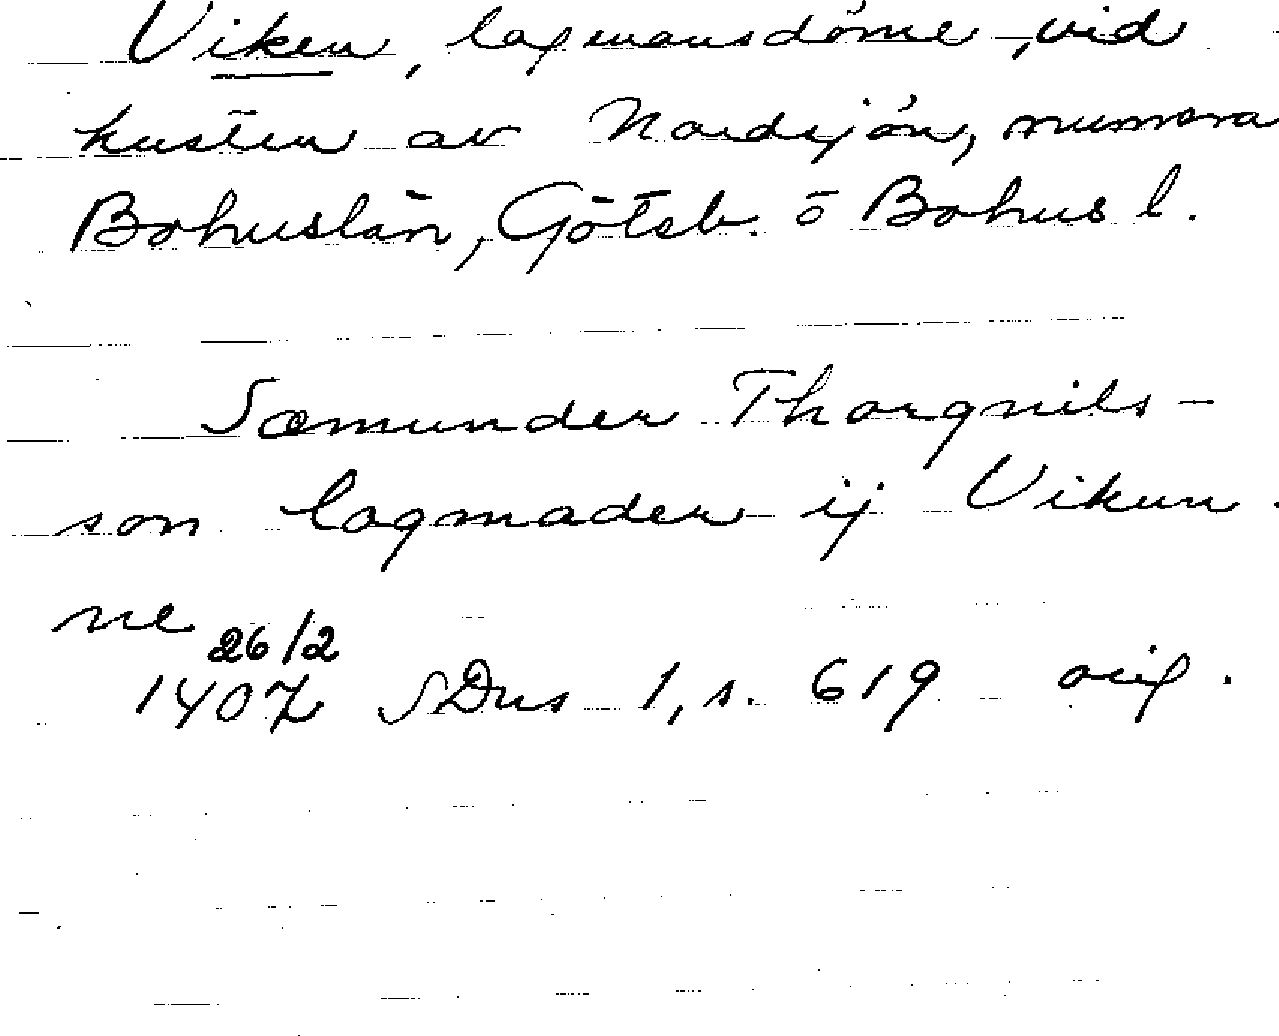 Viken, lagmansdöme, vid
kusten av Nordsjön, numera
Bohuslän, Göteb. o Bohus l.
Sæmunder Thorgnils-
son lagmader ij Vikun-
ne
26/2
1407 SDns 1, s. 619 orig.